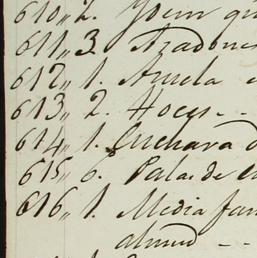 610,, 2. Ydem
611,, 3. Azadones
612,, 1. Azuela
613,, 2. Hoces - -
614,, 1. Cuchara d
615,, 6. Palas de
616,, 1. Media fan
almud - -